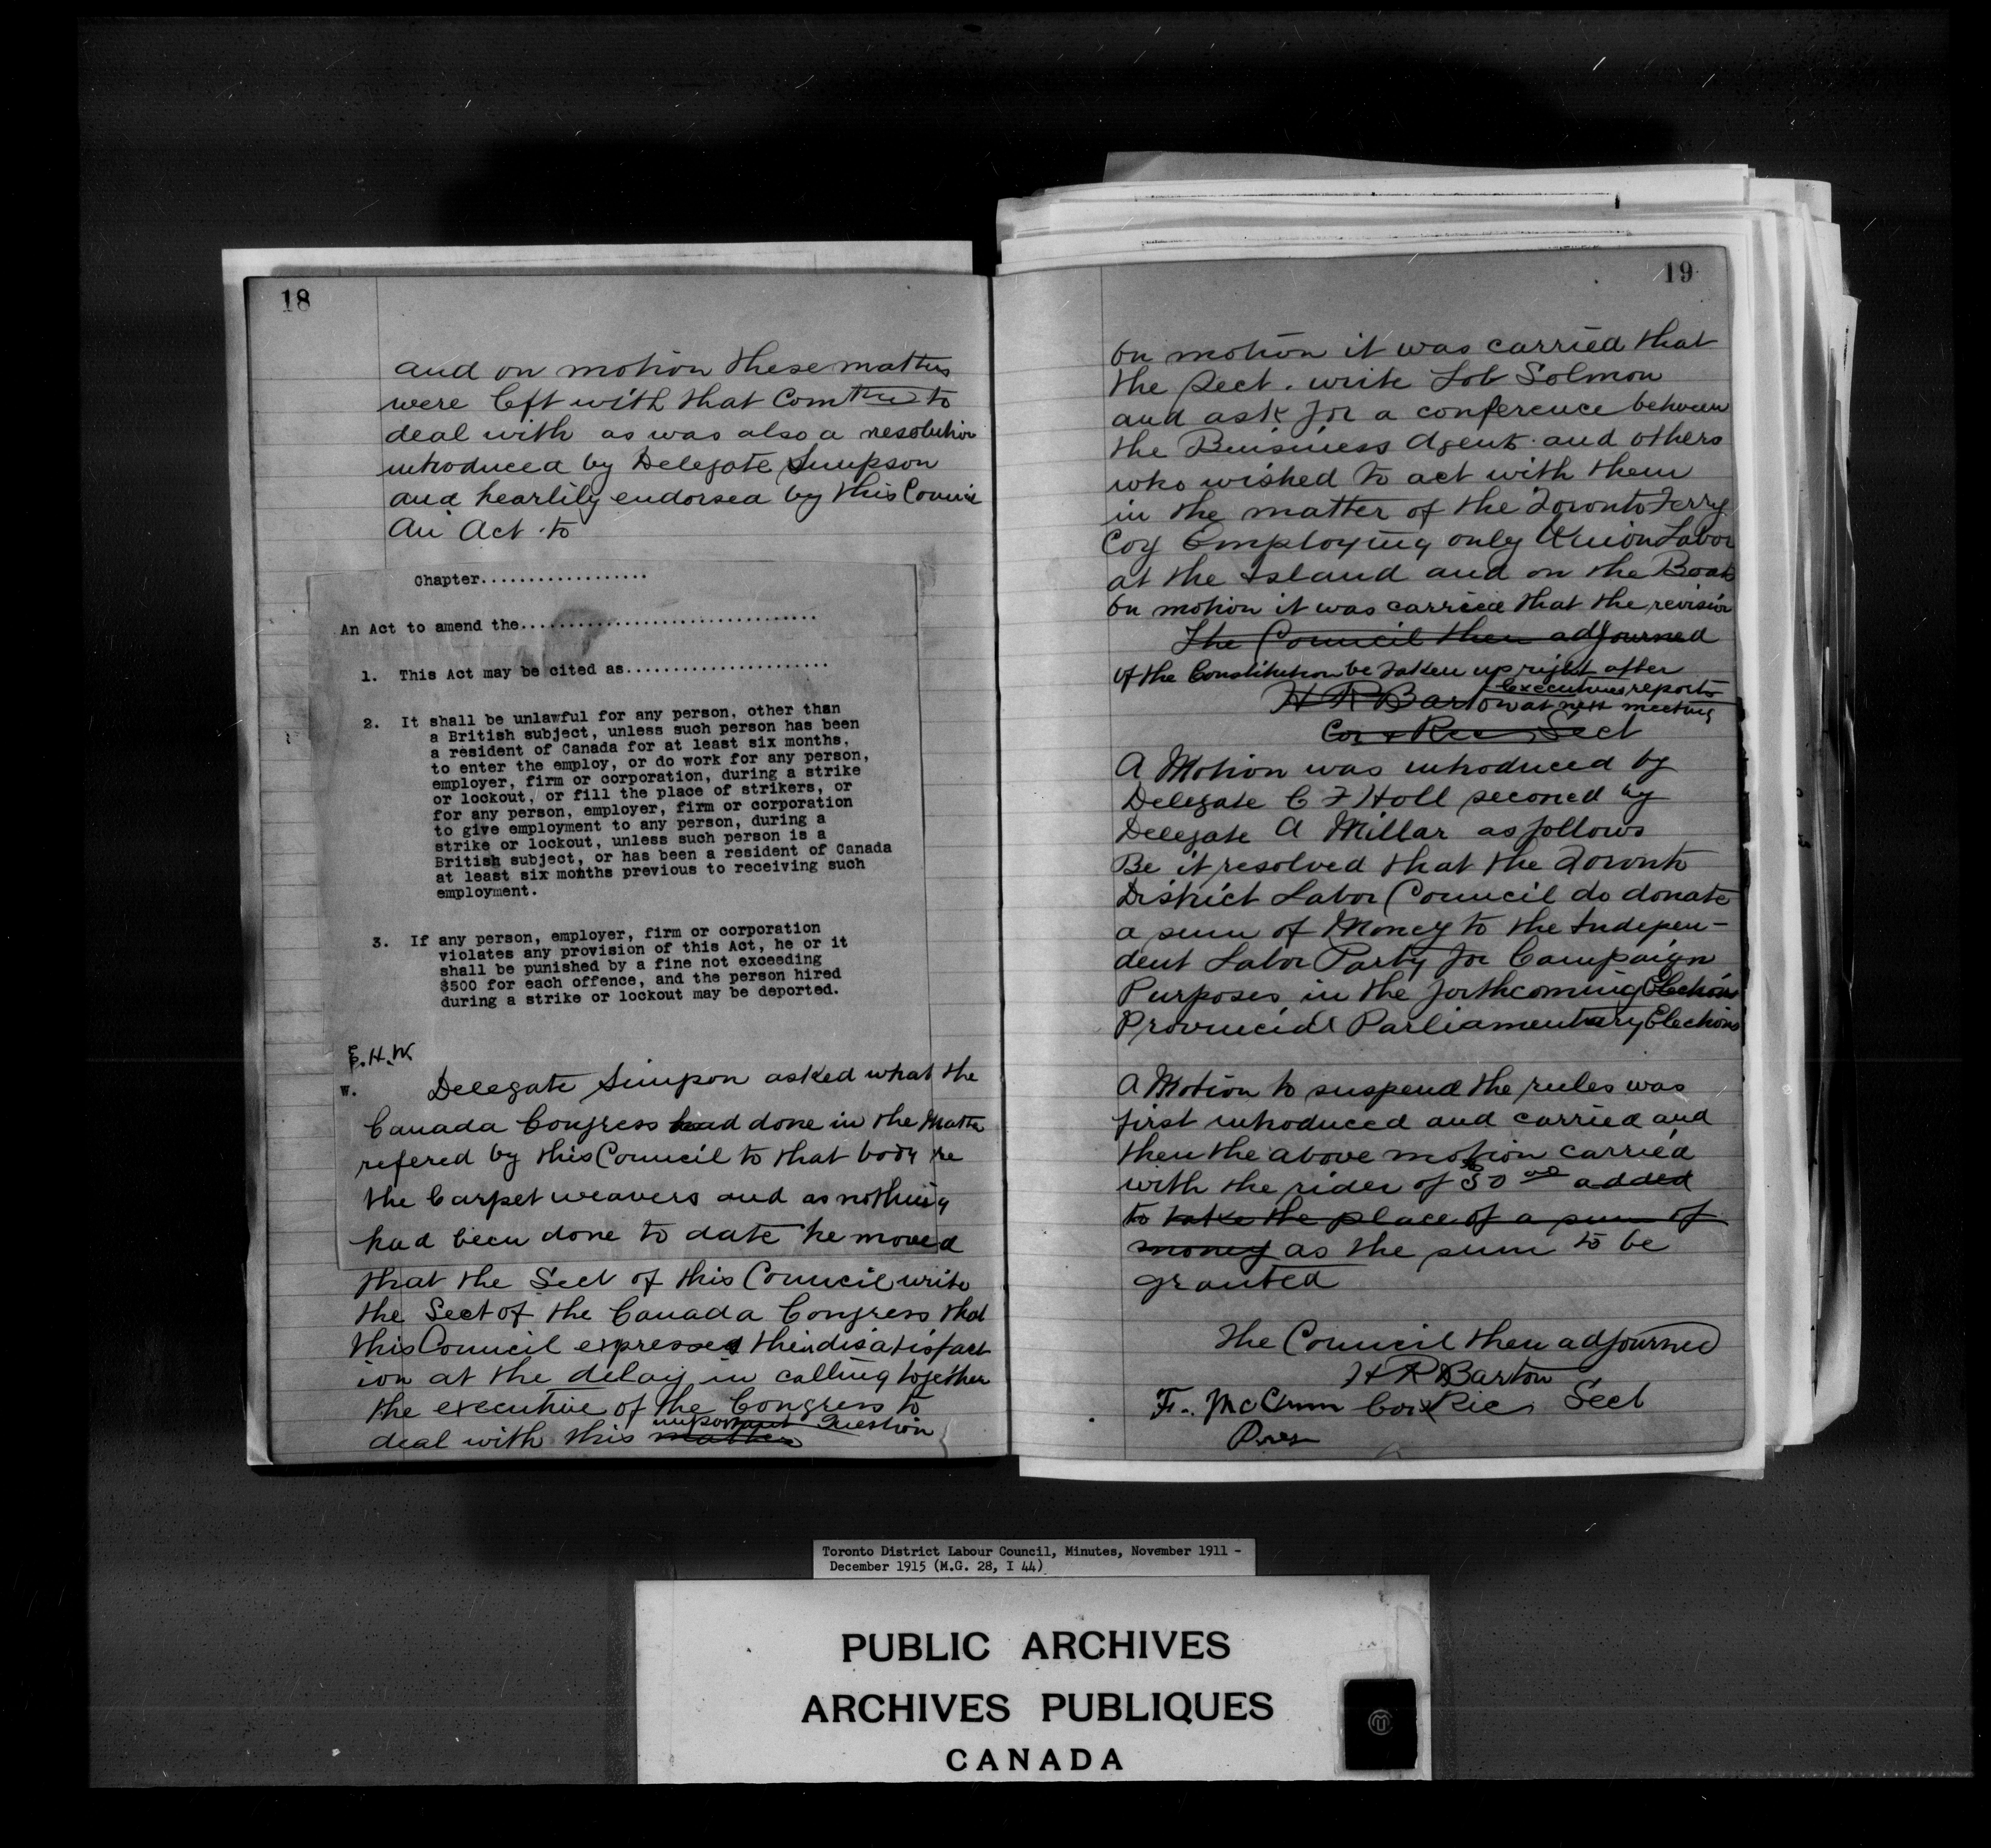 18
and on motion these matters
were left with that Comttee to
deal with as was also a resolution
introduced by Delegate Simpson
and heartily endorsed by this Council
An Act to
Chapter..................
An Act to amend the................................
1. This Act may be cited as......................
2. It shall be unlawful for any person, other than
a British subject, unless such person has been
a resident of Canada for at least six months,
to enter the employ, or do work for any person,
employer, firm or corporation, during a strike
or lockout, or fill the place of strikers, or
for any person, employer, firm or corporation
to give employment to any person, during a
strike or lockout, unless such person is a
British subject, or has been a resident of Canada
at least six months previous to receiving such
employment.
3. If any person, employer, firm or corporation
violates any provision of this Act, he or it
shall be punished by a fine not exceeding
$500 for each offence, and the person hired
during a strike or lockout may be deported.
H.W.
W. Delegate Simpson asked what the
Canada Congress had done in the Matter
refered by this Council to that body re
the Carpet weavers and as nothing
had been done to date he moved
that the Sect of this Council write
the Sect of the Canada Congress that
this Council expressed their disatisfact
ion at the delay in calling together
the executive of the Congress to
important Question
deal with this matter
19
On motion it was carried that
the Sect. write Lol Solmon
and ask for a conference between
the Buisiness Agents and others
who wished to act with them
in the matter of the Toronto Ferry
Coy Employing only Union Labor
at the Island and on the Boats
On motion it was carried that the revision
The Council then adjourned
of the Constitution be taken up right after
Executives reports
H R Barton at next meeting
Cor & Rec Sect
A Motion was introduced by
Delegate C F Holl seconed by
Delegate A Millar as follows
Be it resolved that the Toronto
District Labor Council do donate
a sum of Money to the Indepen-
dent Labor Party for Campaign
Purposes in the forthcoming Elections
Provincial Parliamentary Elections
A Motion to suspend the rules was
first introduced and carried and
then the above motion carried
with the rider of $50 00 added
to take the place of a sum of
money as the sum to be
granted
The Council then adjourned
H R Barton
F. McCunn Cor & Rec Sect
Pres
Toronto District Labour Council, Minutes, November 1911 -
December 1915 (M.G. 28, I 44)
PUBLIC ARCHIVES
ARCHIVES PUBLIQUES
CANADA